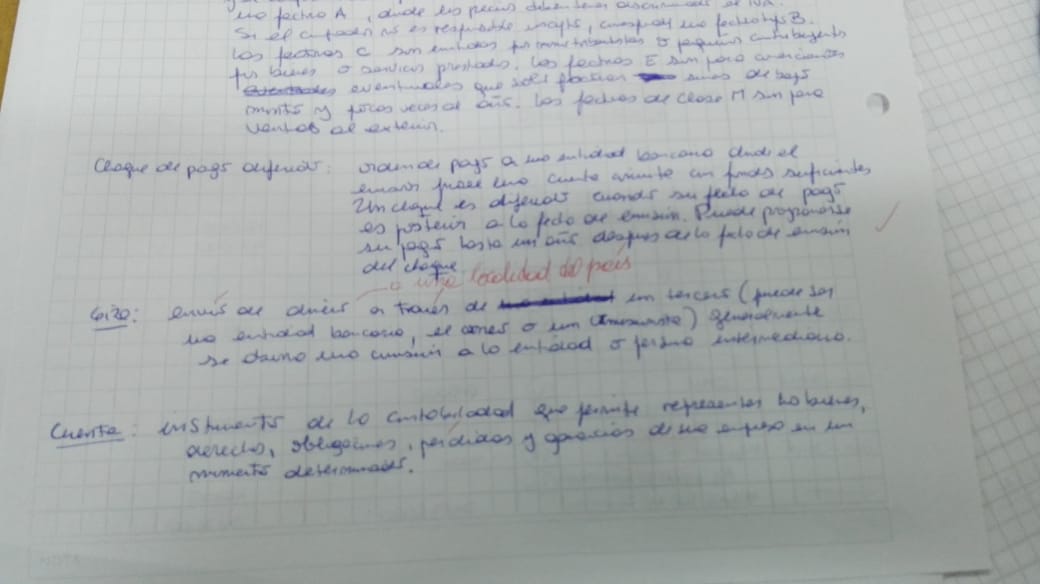 una factura A, donde los precios deben tener discriminado el IVA.
Si el comprador no es responsable inscripto, corresponde una factura tipo B.
Las facturas C son emitidas por monotributistas o pequeños contribuyentes
por bienes o servicios prestados. Las facturas E son para comerciantes
eventuales que solo facturan sumas de bajo
monto y pocas veces al año. Las facturas de clase M son para
ventas al exterior.
Cheque de pago diferido: orden de pago a una entidad bancaria donde el
emisor posee una cuenta corriente con fondos suficientes
Un cheque es diferido cuando su fecha de pago
es posterior a la fecha de emisión. Puede programarse
su pago hasta un año después de la fecha de emisión
del cheque
o una localidad del país
Giro: envío de dinero a través de un tercero (puede ser
una entidad bancaria, el correo o un) generalmente
se cobra una comisión a la entidad o persona intermediaria.
Cuenta: instrumento de la contabilidad que permite representar los bienes,
derechos, obligaciones, pérdidas y ganancias de una empresa en un
momento determinado.